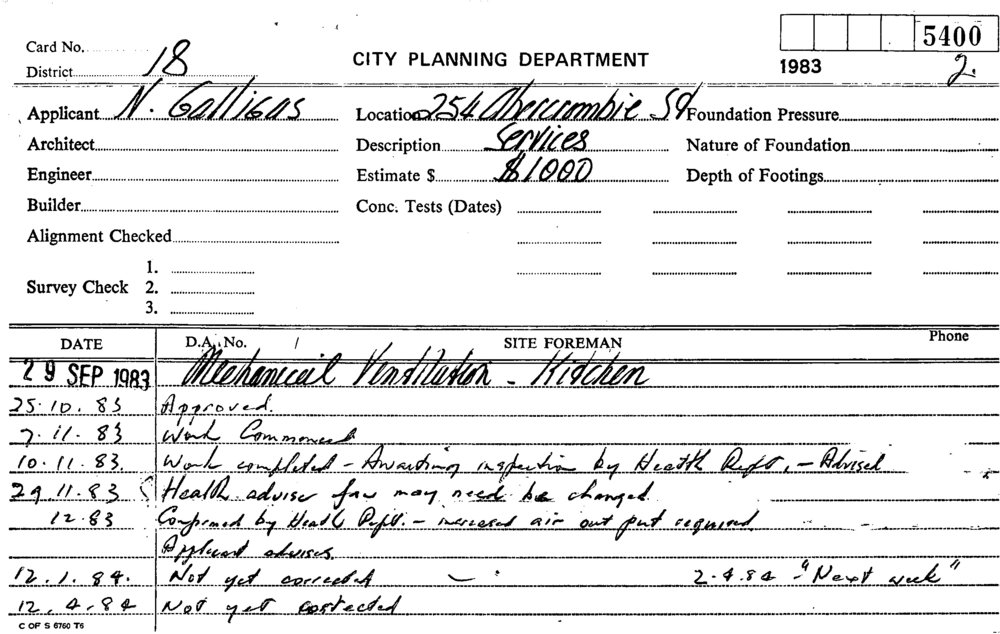 5400
Card No.
CITY PLANNING DEPARTMENT
1983 2.
District 18
Applicant N. Galligas Location 254 Abercrombie St Foundation Pressure
Architect Description Services Nature of Foundation
Engineer Estimate $ $1000 Depth of Footings
Builder Conc. Tests (Dates)
Alignment Checked
1.
Survey Check 2.
3.
DATE D.A. No. / SITE FOREMAN Phone
29 SEP 1983 Mechanical Ventilation - Kitchen
25.10.83 Approved.
7.11.83 Work Commenced
10.11.83. Work completed - Awaiting inspection by Health Dept. - Advised
29.11.83 Health advise fan may need be changed
12.83 Confirmed by Health Dept. - increased air out put required
Applicant advises
12.1.84. Not yet corrected 2.4.84 - "Next week"
12.4.84 Not yet corrected
C OF S 6760 T6